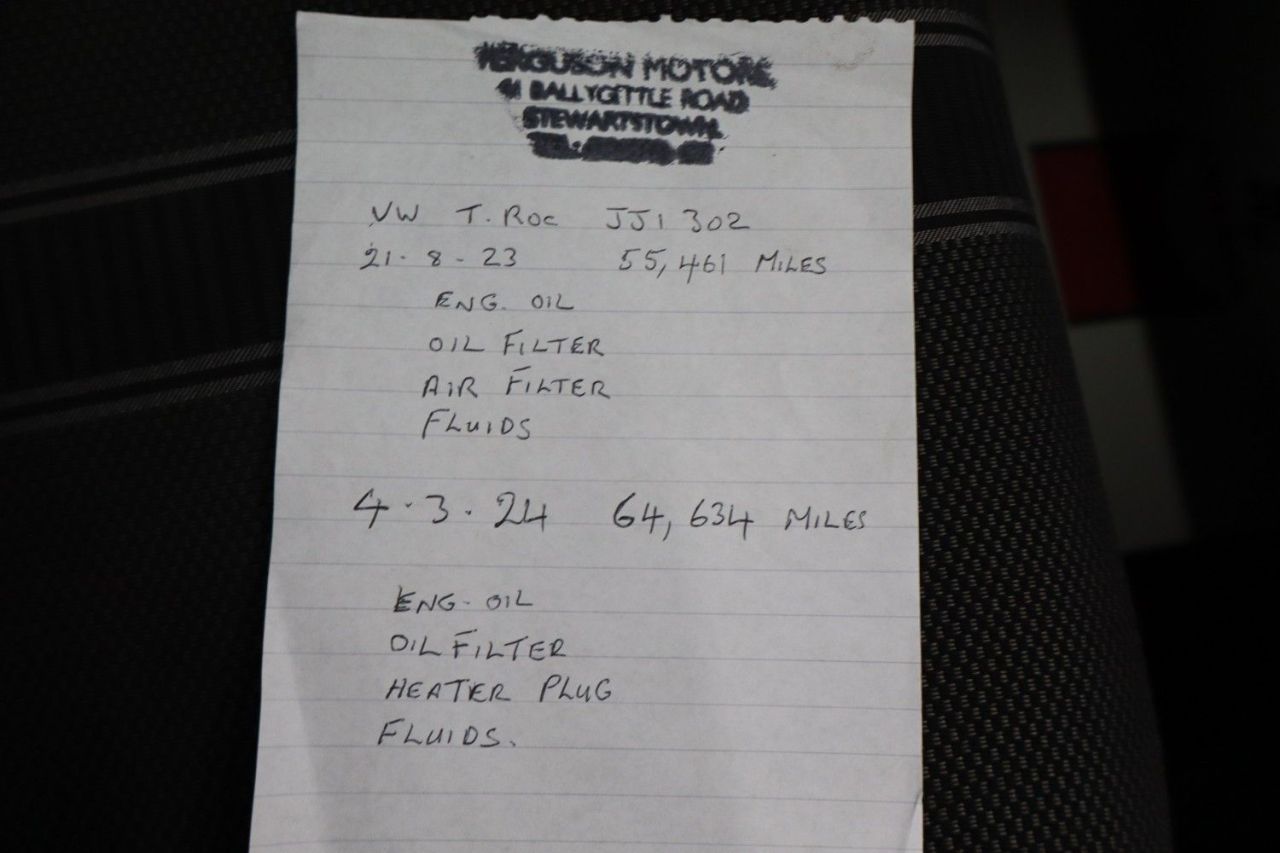 FERGUSON MOTORS
41 BALLYGITTLE ROAD
STEWARTSTOWN
TEL:
VW T. ROC JJI 302
21 - 8 - 23 55,461 MILES
ENG. OIL
OIL FILTER
AIR FILTER
FLUIDS
4 · 3 · 24 64,634 MILES
ENG. OIL
OIL FILTER
HEATER PLUG
FLUIDS.